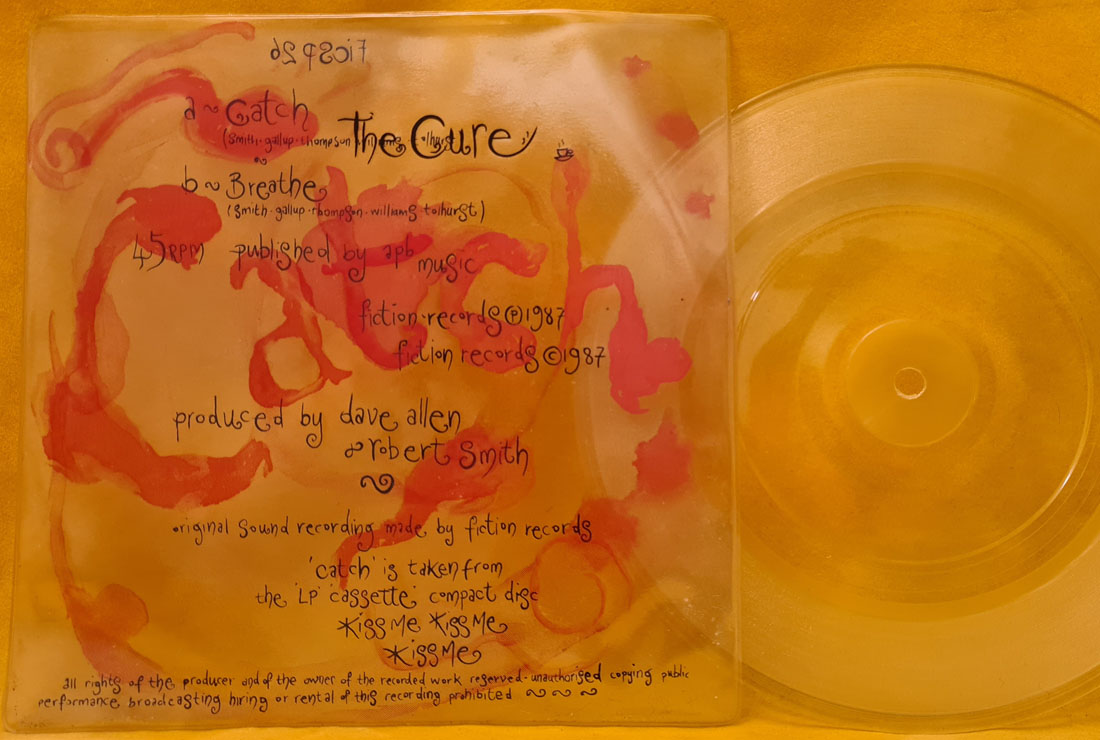 FICSP 26
a ~ Catch
The Cure
(Smith · gallup · thompson
b ~ Breathe
(smith · gallup · thompson · williams tolhurst)
45 RPM published by apb music
fiction · records ℗ 1987
fiction records © 1987
produced by dave allen
& robert Smith
original sound recording made by fiction records
'catch' is taken from
the 'LP' cassette' compact disc
Kiss Me Kiss Me
Kiss Me
all rights of the producer and of the owner of the recorded work reserved · unauthorised copying public
performance broadcasting hiring or rental of this recording prohibited ~ ~ ~